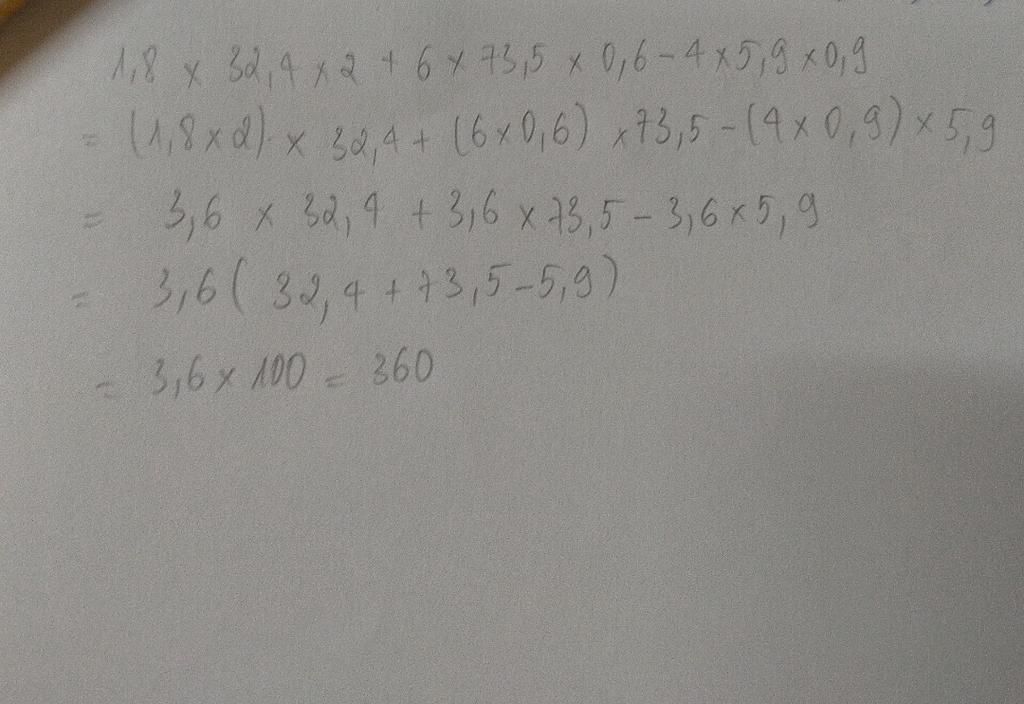 1,8 × 32,4 × 2 + 6 × 73,5 × 0,6 - 4 × 5,9 × 0,9
= (1,8 × 2) × 32,4 + (6 × 0,6) × 73,5 - (4 × 0,9) × 5,9
= 3,6 × 32,4 + 3,6 × 73,5 - 3,6 × 5,9
= 3,6 ( 32,4 + 73,5 - 5,9)
= 3,6 × 100 = 360